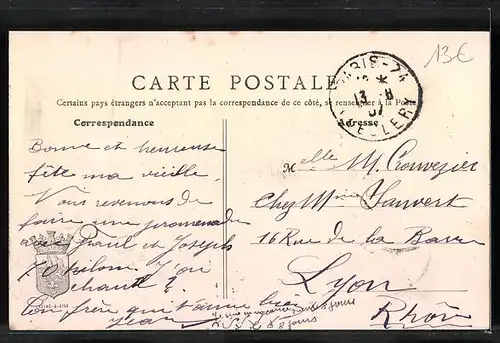 13€
CARTE POSTALE
Certains pays étrangers n'acceptant pas la correspondance de ce côté, se renseigner à la Poste
Correspondance
Adresse
PARIS-74
13 - 8
07
Bonne et heureuse
fête ma vieille.
Vous revenons de
faire une promenade
avec Paul et Joseph
chanté ?
Ton frère qui t'aime bien
Jean
8 jours
Melle M. Crouvezier
Chez Mme Vauvert
16 Rue de la Barre
Lyon
Rhône